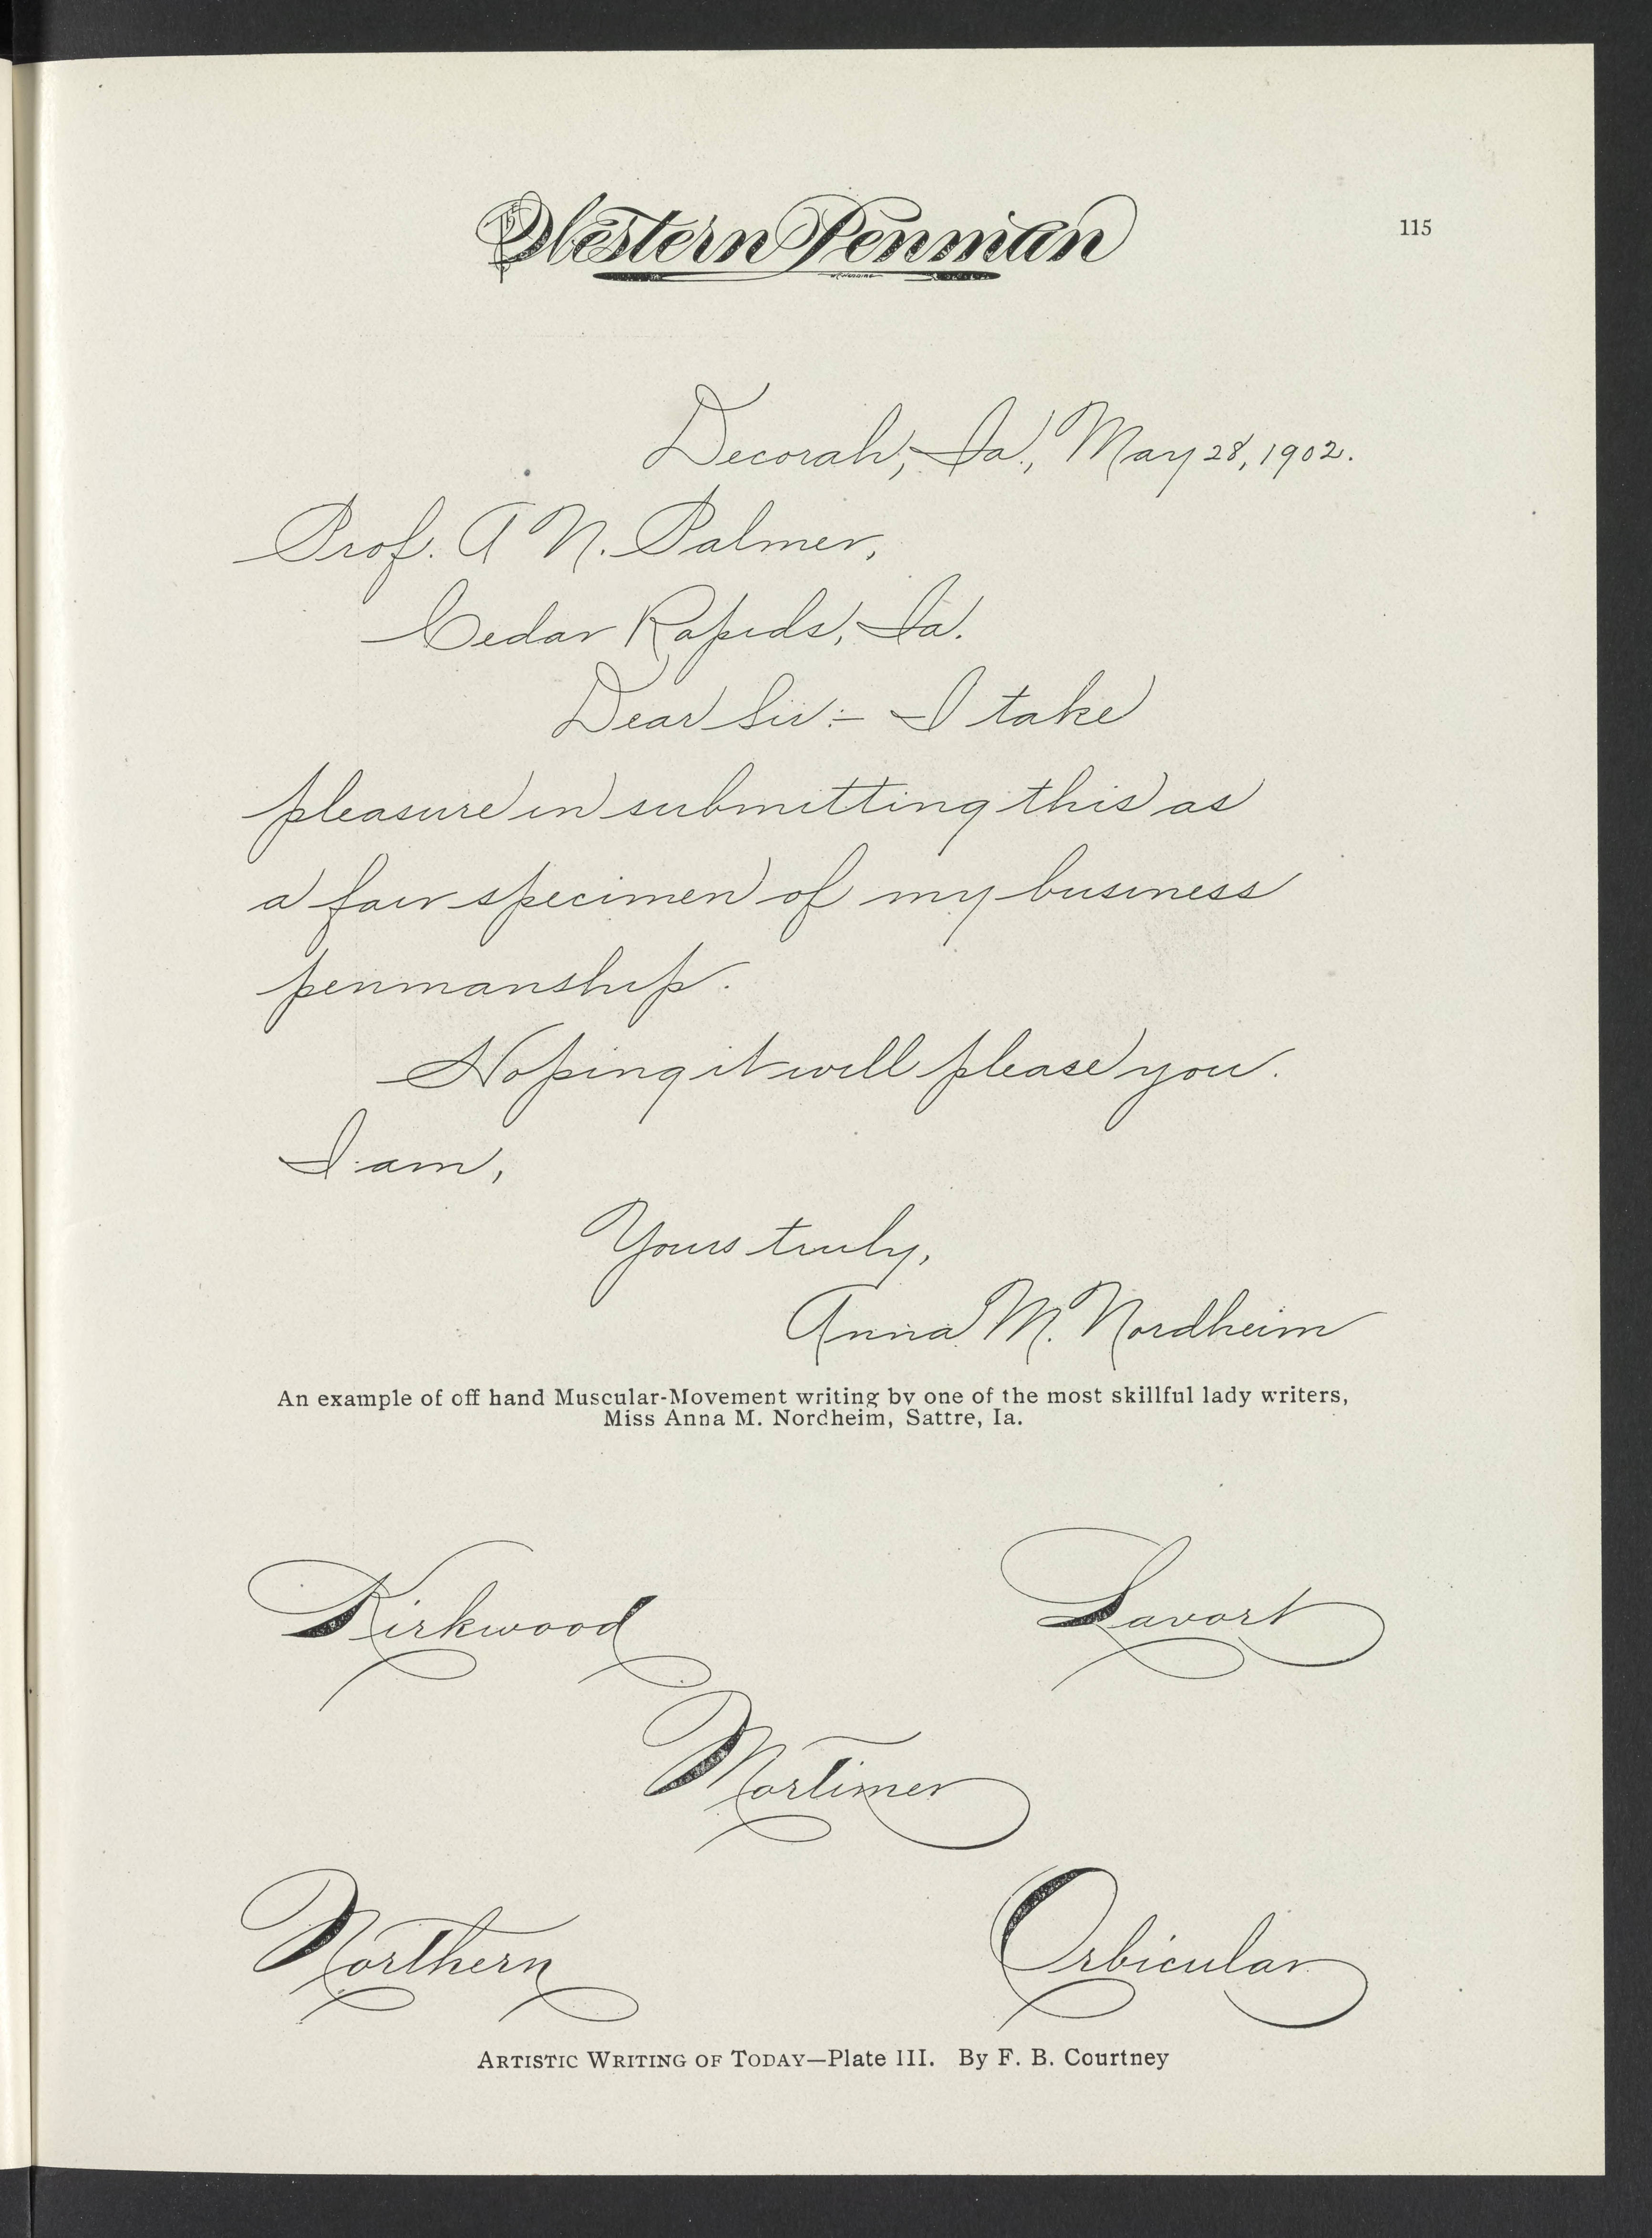 The Western Penman
115
Decorah, Ia., May 28, 1902.
Prof. A. N. Palmer,
Cedar Rapids, Ia.
Dear Sir:- I take
pleasure in submitting this as
a fair specimen of my business
penmanship.
Hoping it will please you.
I am,
Yours truly,
Anna M. Nordheim
An example of off hand Muscular-Movement writing by one of the most skillful lady writers,
Miss Anna M. Nordheim, Sattre, Ia.
Kirkwood
Lavort
Mortimer
Northern
Orbicular
ARTISTIC WRITING OF TODAY—Plate III. By F. B. Courtney